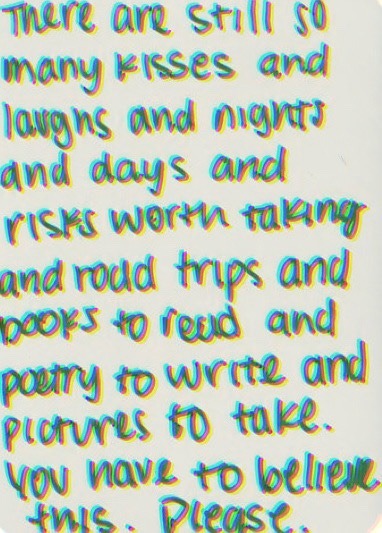 There are still so
many kisses and
laughs and nights
and days and
risks worth taking
and road trips and
books to read and
poetry to write and
pictures to take.
You have to believe
this. Please.